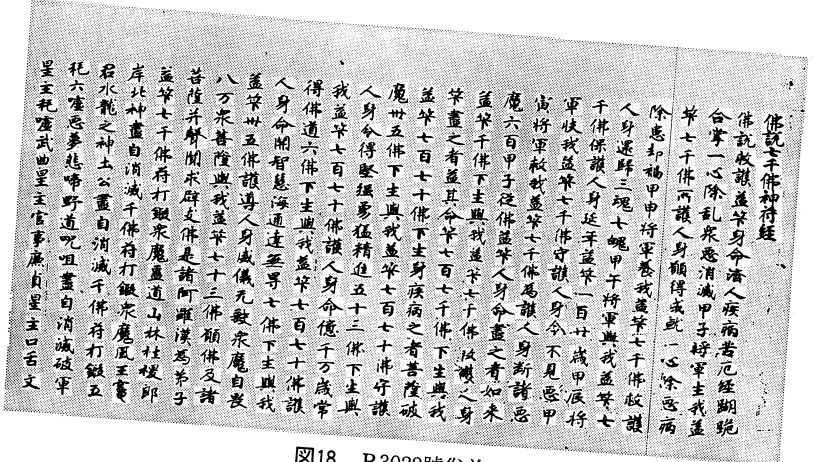 佛說七千佛神符經
佛說救護益筭身命濟人疾病苦厄経蹋跪
合掌一心除乱衆惡消滅甲子將軍主我益
筭七千佛所護人身願得成就一心除惡病
除患却禍甲申將軍養我益筭七千佛救護
人身還歸三魂七魄甲午將軍與我益筭七
千佛保護人身延年益筭一百廿歲甲辰將
軍扶我益筭七千佛守護人身令不見惡甲
寅將軍救我益筭七千佛為護人身斷諸惡
魔六百甲子從佛益筭人身命盡之者如来
益筭千佛下生與我益筭七千佛救護之身
筭盡之者益其命筭七百七千佛下生與我
益筭七百七十佛下生身疾病之者菩薩破
魔卅五佛下生與我益筭七百七十佛守護
人身令得堅強勇猛精進五十三佛下生與
我益筭七百七十佛護人身命億千万歲常
得佛道六佛下生與我益筭七百七十佛護
人身命開智慧海通達無导七佛下生與我
益筭卅五佛護導人身威儀无數衆魔自喪
八万衆菩薩與我益筭七十三佛願佛及諸
菩薩并聲聞求辟支佛是諸阿羅漢為弟子
益筭七千佛符打鍛衆魔蠱道山林社稷郎
岸北神盡自消滅千佛符打鍛衆魔風王
君水龍之神土公盡自消滅千佛符打鍛五
秏六虛惡夢悲啼野道呪咀盡自消滅破軍
星主秏虛武曲星主官事廉貞星主口舌文
図18 P.3022號